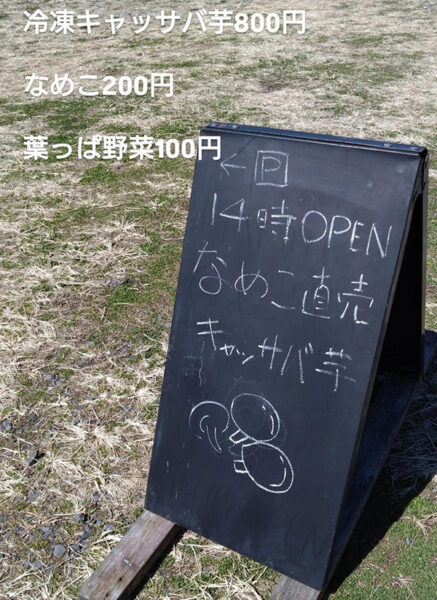 冷凍キャッサバ芋800円
なめこ200円
葉っぱ野菜100円
←P
14時OPEN
なめこ直売
キャッサバ芋